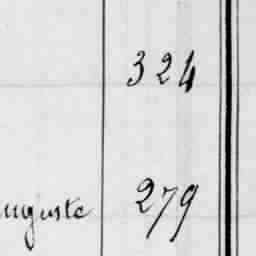 324
auguste 279